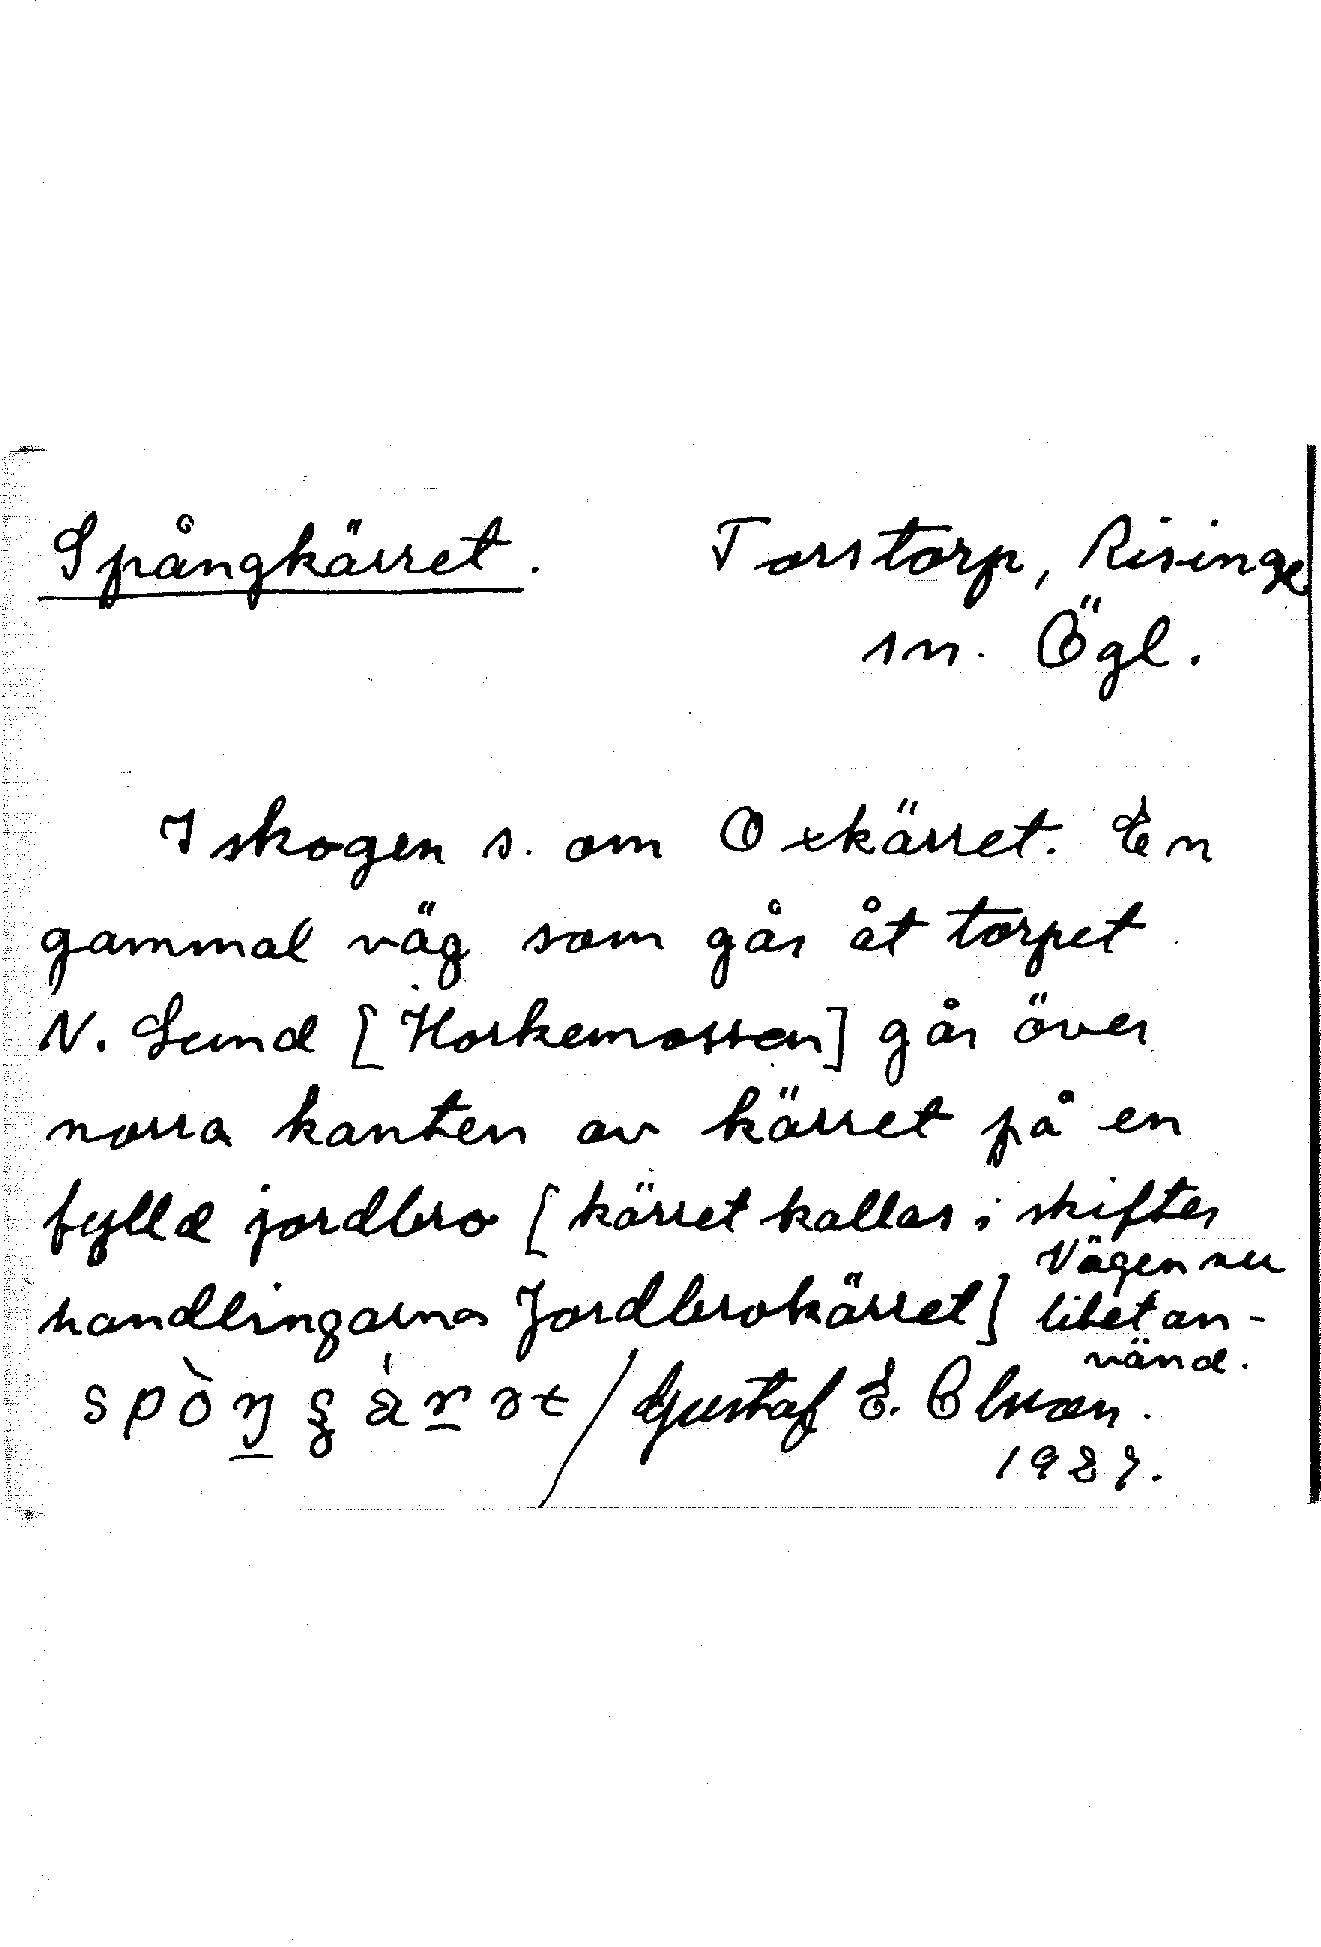 Spångkärret. Torstorp, Risinge
sn. Ögl.
I skogen s. om Oxkärret. En
gammal väg som går åt torpet
N. Lund [Horkemossen] går över
norra kanten av kärret på en
fylld jordbro [kärret kallas i skiftes
handlingarna Jordbrokärret] Vägen nu
litet an-
vänd.
/ Gustaf E.
1937.